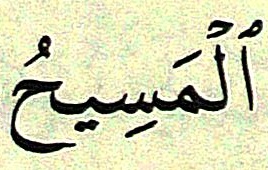 ٱلْمَسِيحُ